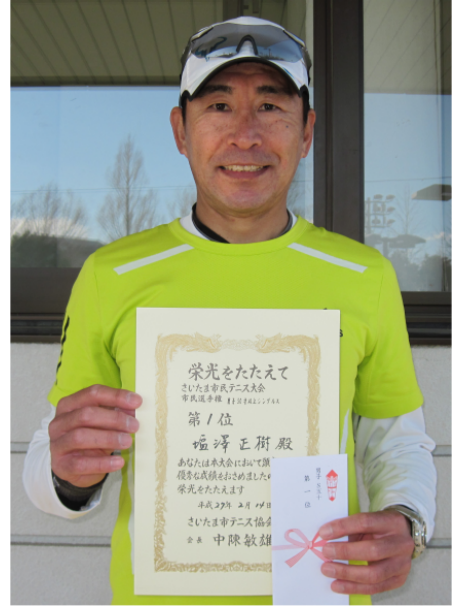 栄光をたたえて
さいたま市民テニス大会
市民選手権
第1位
塩澤正樹殿
あなたは本大会において
優秀な成績をおさめました
栄光をたたえます
平成29年2月19日
さいたま市テニス協会
会長 中陳敏雄
第一位